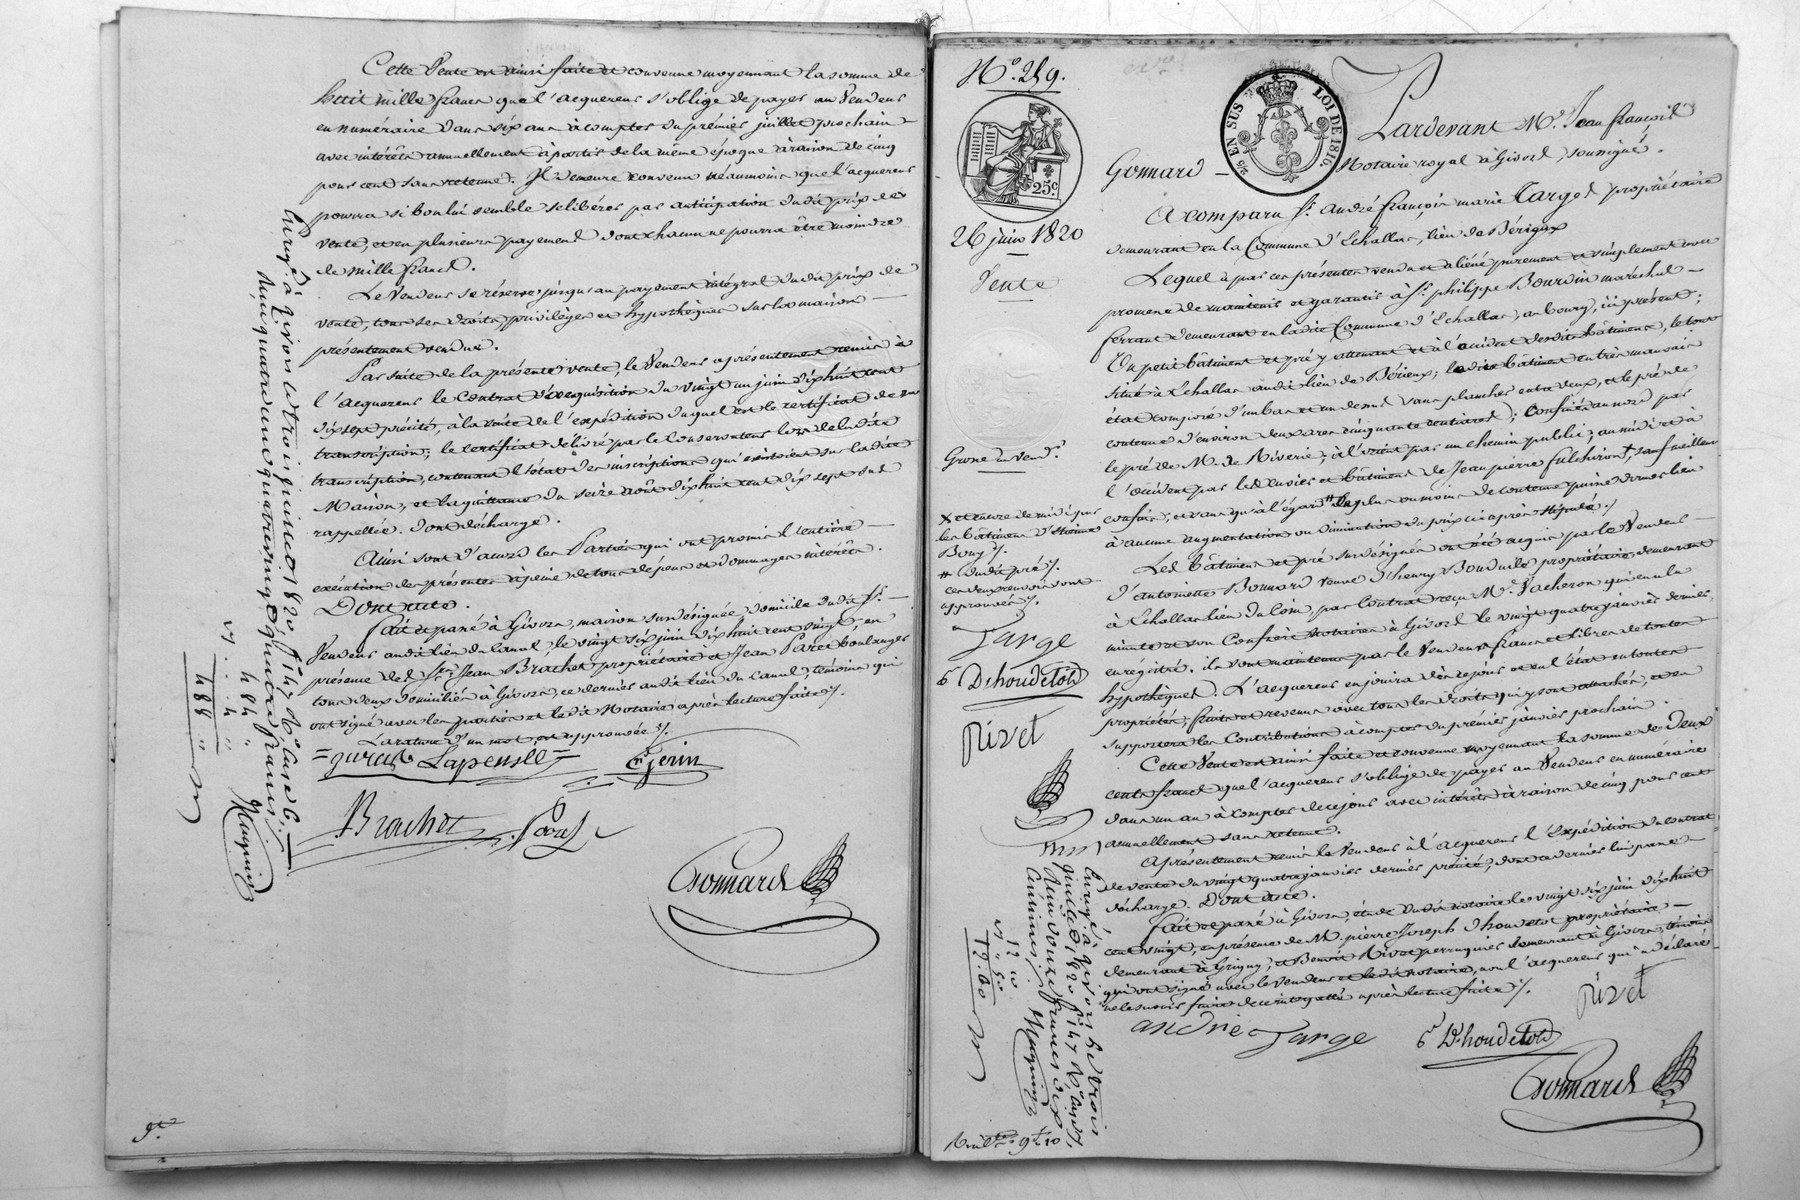 Cette Vente est ainsi faite et convenue moyennant la somme de
huit mille francs que l'acquereur s'oblige de payer au Vendeur
en numéraire dans six ans à compter du premier juillet prochain
avec intérêts annuellement à partir de la même époque à raison de cinq
pour cent sans retenue. Il demeure convenu neanmoins que l'acquereur
pourra si bon lui semble se libérer par anticipation dudit prix de
vente, et en plusieurs payemens dont chacun ne pourra être moindre
de mille francs.
Le Vendeur se réserve jusqu'au payement intégral dudit prix de
vente, tous ses droits, privilèges et hypothèques sur la maison
présentement vendue.
Par suite de la présente vente, le Vendeur a présentement remis à
l'acquereur le Contrat d'acquisition du vingt un juin dix huit cent
dix sept précité, à la suite de l'expédition duquel est le certificat de
transcription; le certificat délivré par le Conservateur lors de ladite
transcription, contenant l'état des inscriptions qui existoient sur ladite
Maison, et la quittance du seize août dix huit cent dix sept sus
rappellée. Dont décharge.
Ainsi sont d'accord les Parties qui ont promis l'entière
exécution des présentes à peine de tous dépens et dommages intérêts.
Dont acte.
Fait et passé à Givors, maison sus désignée, domicile dudit Sr.
Vendeur audit lieu du canal, le vingt six juin dix huit cent vingt, en
présence de Srs. Jean Brachet propriétaire et Jean Paret boulanger
tous deux domiciliés à Givors, ce dernier audit lieu du Canal, témoins qui
ont signé avec les parties et ledit Notaire après lecture faite ./.
La rature d'un mot est approuvée ./.
Lapeille
Brachet
Gonnard
Enrgé. à Givors le trois juillet 1820, fo. 147
Reçu quatre cent quatre vingt quatre francs
484 "
488 "
No. 259.
EN SUS
LOI DE 1816.
25 c.
26 juin 1820
Vente
Grosse au Vendr.
Pardevant Me. Jean françois
Gonnard Notaire royal à Givors, soussigné.
A comparu Sr. André françois marie Targe propriétaire
demeurant en la Commune d'Echallas, lieu de Bérieux
Lequel a par ces présentes vendu et aliéné purement et simplement avec
promesse de maintenir et garantir à Sr. philippe Bourdin maréchal
ferrant demeurant en ladite Commune d'Echallas, au bourg, ici présent;
Un petit bâtiment et pré y attenant et à l'occident desdits bâtimens, le tout
situé à Echallas audit lieu de Bérieux; ledit bâtiment en très mauvais
état composé d'un bas et un dessus sans plancher entre deux, et le pré de
contenue d'environ deux ares cinquante centiares; Confinés au nord par
le pré de M. de Riverie; à l'orient par un chemin public; au midi et à
l'occident par les cuvies et bâtiment de Jean pierre fulchiron +, sauf meilleurs
confins, et sans qu'à l'égard # le plus ou moins de contenue puisse donner lieu
à aucune augmentation ou diminution du prix ci après stipulé ./.
Les bâtiment et pré sus désignés ont été acquis par le Vendeur
d'antoinette Bonnard veuve d'henry propriétaire demeurant
à Echallas lieu du Com, par Contrat reçu Me. Vacheron qui en a la
minute et son Confrère Notaires à Givors le vingt quatre janvier dernier,
enregistré. ils sont maintenus par le Vendeur francs et libres de toutes
hypothèques. L'acquereur en jouira dès ce jour et en l'état en toute
propriété, fruits et revenus avec tous les droits qui y sont attachés, et en
supportera les Contributions à compter du premier janvier prochain.
Cette Vente est ainsi faite et convenue moyennant la somme de Deux
cents francs que l'acquereur s'oblige de payer au Vendeur en numéraire
dans un an à compter de ce jour avec intérêts à raison de cinq pour cent
annuellement sans retenue.
A présentement remis le Vendeur à l'acquereur l'expédition du contrat
de vente du vingt quatre janvier dernier précité, dont ce dernier lui passe
décharge. Dont acte.
Fait et passé à Givors, étude dudit notaire le vingt six juin dix huit
cent vingt, en présence de M. pierre Joseph d'houdetot propriétaire
demeurant à Grigny, et Benoit Rivet perruquier demeurant à Givors, témoins
qui ont signé avec le Vendeur et ledit notaire, non l'acquereur qui a déclaré
ne le savoir faire de ce interpellé après lecture faite ./.
X et encore de midi par
les bâtimens d'Etienne
Bony ./.
# dudit pré ./.
ces deux renvois sont
approuvés ./.
Targe
D'houdetot
Rivet
andré Targe
D'houdetot
Rivet
Gonnard
Enrgé. à Givors le trois
juillet 1820 fo. 147
Reçu douze francs dix
centimes
12.10